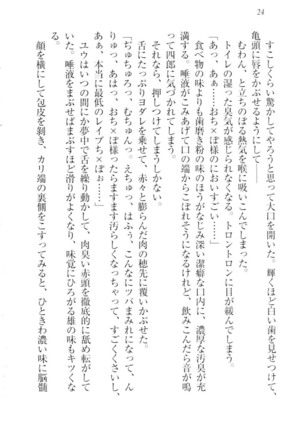 24
すこしくらい驚かしてやろうと思って大口を開いた。輝くほど白い歯を見せつけて、
亀頭に唇をかぶせるようにして――
むわん、と立ちのぼる熱気を喉に吸いこんでしまった。
トイレの湿った臭気が感じられなくなる。トロントロンに目が緩んでしまう。
「あっ、あぁ……おち×ぽ様のにおいすごい……」
食べ物の味よりも歯磨き粉の味のほうがなじみ深い潔癖な口内に、濃厚な汚臭が充
満する。唾液がこみあげて口の端からこぼれそうになるけれど、飲みこんだら音が鳴
って四郎に気づかれてしまう。
それなら、押しつけてしまうしかない。
舌にたっぷりヨダレを乗せて、赤々と膨らんだ肉の穂先に覆いかぶせた。
「ぢゅちゅるっ、むちゅんっ。えっちゅ、はふぅ、こんなにツバまみれになって、ん
りゅっ、あはっ、おち×ぽ様ったらますます汚らしくなっちゃって、すごくくさいし、
あぁ、本当に最低のレイプち×ぽぉ……」
ユウはいつの間にか夢中で舌を繰り動かして、肉臭い赤頭を徹底的に舐め転がして
いた。唾液をまぶせばまぶすほど滑りがよくなり、味覚にひろがる雄の味もキツくな
顔を横にして包皮を剥き、カリ端の裏側をこすってみると、ひときわ濃い味に脳髄